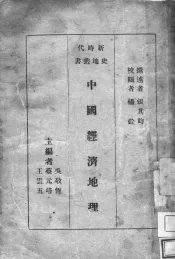 新時代
史地叢書
撰述者 張其昀
校閱者 楊銓
中國經濟地理
主編者
吳敬恆
蔡元培
王雲五